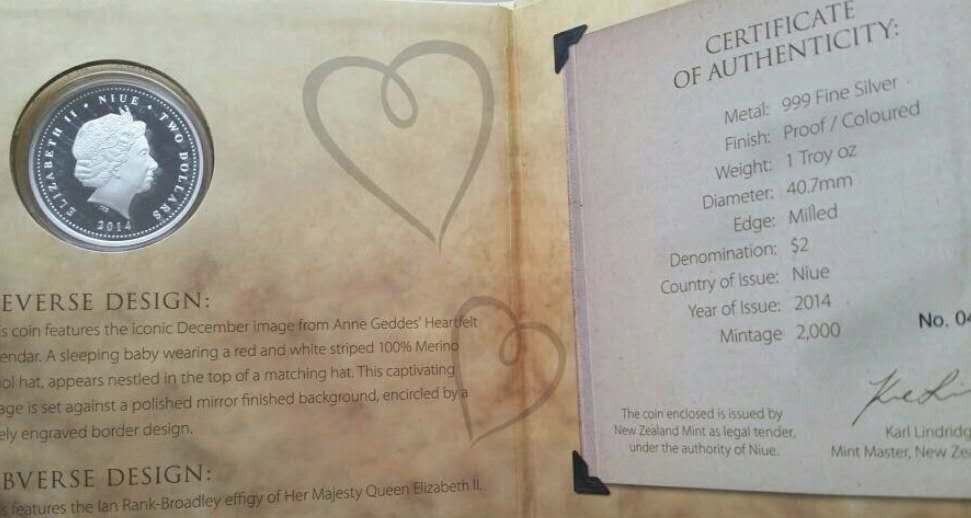 ELIZABETH II • NIUE • TWO DOLLARS
2014
EVERSE DESIGN:
is coin features the iconic December image from Anne Geddes' Heartfelt
endar. A sleeping baby wearing a red and white striped 100% Merino
ol hat, appears nestled in the top of a matching hat. This captivating
age is set against a polished mirror finished background, encircled by a
ely engraved border design.
BVERSE DESIGN:
s features the Ian Rank-Broadley effigy of Her Majesty Queen Elizabeth II.
CERTIFICATE
OF AUTHENTICITY:
Metal: 999 Fine Silver
Finish: Proof / Coloured
Weight: 1 Troy oz
Diameter: 40.7mm
Edge: Milled
Denomination: $2
Country of Issue: Niue
Year of Issue: 2014
Mintage 2,000
No. 04
The coin enclosed is issued by
New Zealand Mint as legal tender,
under the authority of Niue.
Karl Lindridg
Mint Master, New Zea